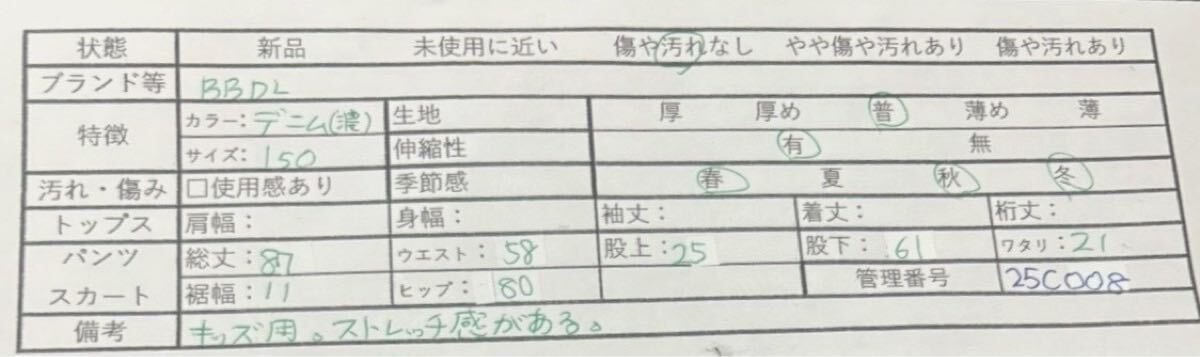 状態 新品 未使用に近い 傷や汚れなし やや傷や汚れあり 傷や汚れあり
ブランド等 BBDL
特徴 カラー：デニム(濃) 生地 厚 厚め 普 薄め 薄
サイズ：150 伸縮性 有 無
汚れ・傷み □使用感あり 季節感 春 夏 秋 冬
トップス 肩幅： 身幅： 袖丈： 着丈： 桁丈：
パンツ 総丈：87 ウエスト：58 股上：25 股下：61 ワタリ：21
スカート 裾幅：11 ヒップ：80 管理番号 25C008
備考 キッズ用。ストレッチ感がある。